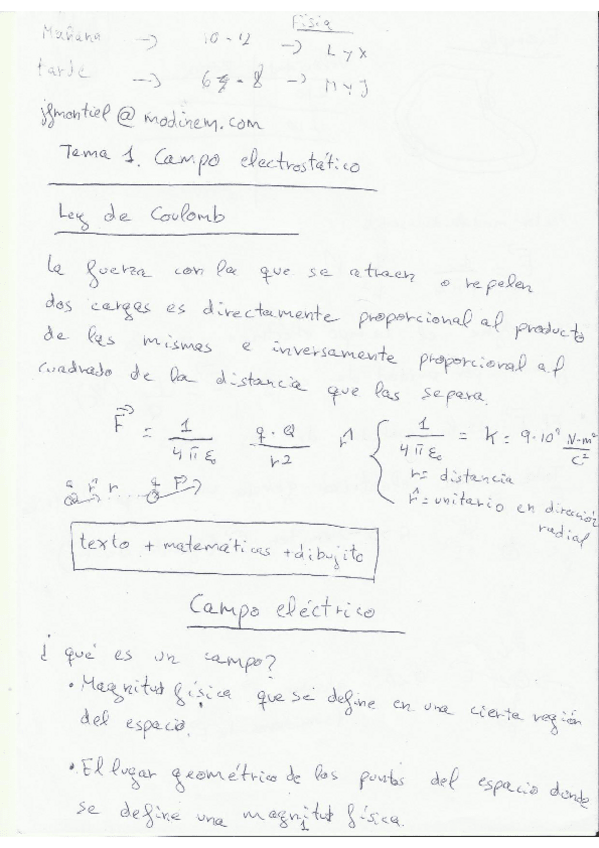 Física
Mañana -> 10-12 -> L y X
tarde -> 6 - 8 -> M y J
jfmontiel@modinem.com
Tema 1. Campo electrostático
Ley de Coulomb
la fuerza con la que se atraen o repelen
dos cargas es directamente proporcional al producto
de las mismas e inversamente proporcional al
cuadrado de la distancia que las separa.
F⃗ = 1/(4πε₀) q·Q/r2 r̂ { 1/(4πε₀) = K = 9·10⁹ N·m²/C²
r = distancia
r̂ = unitario en dirección
radial
Q r̂ r q F⃗
texto + matemáticas + dibujito
Campo eléctrico
¿qué es un campo?
• Magnitud física que se define en una cierta región
del espacio.
• El lugar geométrico de los puntos del espacio donde
se define una magnitud física.
1